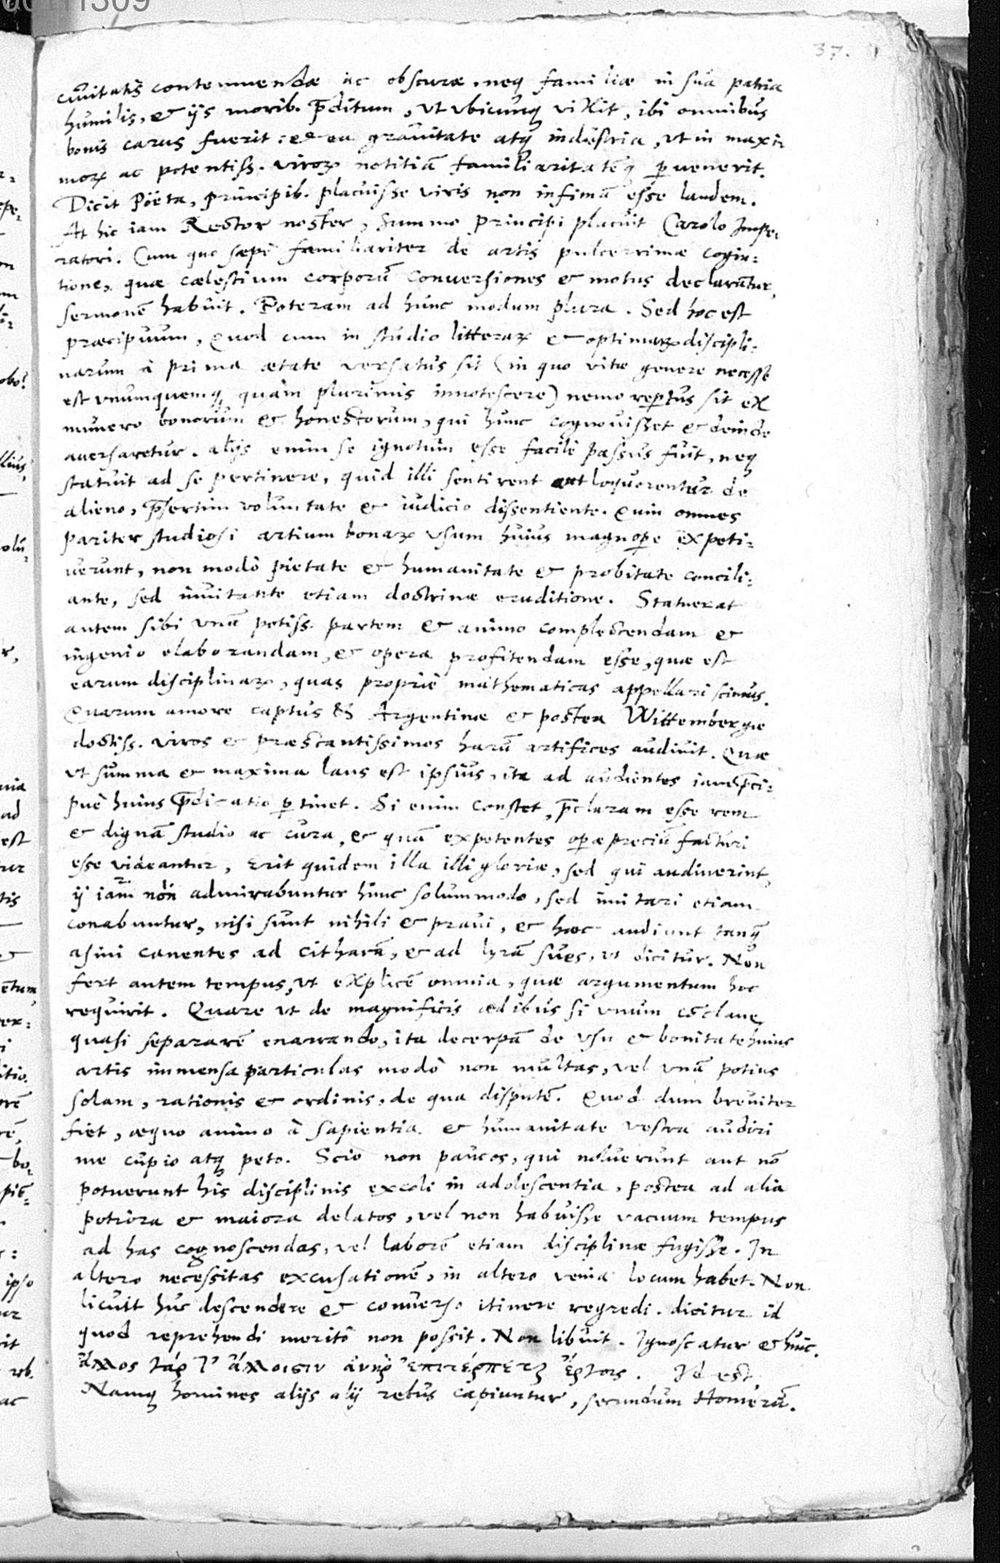 37.
civitatis contemnendæ ac obscuræ, neq familiæ in sua patria
humilis, & ijs morib. p̄ditum, vt vbicunq vixit, ibi omnibus
bonis carus fuerit: & ea gravitate atq industria, vt in maxi
morꝝ ac potentiss. virorꝝ notitiā familiaritatēq pervenerit.
Dicit Poëta, principib. placuisse viris non infimā esse laudem.
At hic iam Rector noster, summo principi placuit Carolo Impe,
ratori. Cum quo sæpe familiariter de artis pulcerrimæ cogni=
tione, quæ cælestium corporū conversiones & motus declarātur,
sermonē habuit. Poteram ad hunc modum plura. Sed hoc est
præcipuum, Quod cum in studio litterarꝝ & optimarꝝ discipli,
narum à prima ætate versatus sit (in quo vitæ genere necesse
est vnumquemq quàm plurimis innotescere) nemo repertus sit ex
numero bonorum & honestorum, qui hunc cognovisset & deinde
aversaretur. alijs enim se ignotum esse facile passus fuit, neq
statuit ad se pertinere, quid illi sentirent aut loquerentur de
alieno, p̄sertim voluntate & iudicio dissentiente. Quin omnes
pariter studiosi artium bonarꝝ vsum huius magnopere expeti=
verunt, non modò pietate & humanitate & probitate concili=
ante, sed invitante etiam doctrinæ eruditione. Statuerat
autem sibi vnā potiss. partem & animo complectendam &
ingenio elaborandam, & opera profitendam esse, quæ est
earum disciplinarꝝ, quas propriè mathematicas appellari scimus.
Quarum amore captus & Argentinæ & postea Wittembergæ
doctiss. viros & præstantissimos harū artifices audivit. Quæ
vt summa & maxima laus est ipsius, ita ad audientes iam p̄ci=
puè huius p̄dicatio pertinet. Si enim constet, p̄claram esse rem
& dignā studio ac cura, & quā expetentes operæprecium facturi
esse videantur, erit quidem illa illi gloriæ, sed qui audiverint,
ij iam non admirabuntur hunc solummodo, sed imitari etiam
conabuntur, nisi sunt nihili & pravi, & hæc audiunt tanq
asini canentes ad citharā, & ad lyrā sues, vt dicitur. Non
fert autem tempus, vt explicē omnia, quæ argumentum hoc
requirit. Quare vt de magnificis ædibus si vnum cōclave
quasi separarē enarrando, ita decerpā de vsu & bonitate huius
artis immensa particulas modò non multas, vel vnā potius
solam, rationis & ordinis, de qua disputē. Quod dum breviter
fiet, æquo animo à sapientia & humanitate vestra audiri
me cupio atq peto. Scio non paucos, qui noluerunt aut nō
potuerunt his disciplinis excoli in adolescentia, postea ad alia
potiora & maiora delatos, vel non habuisse vacuum tempus
ad has cognoscendas, vel laborē etiam disciplinæ fugisse. In
altero necessitas excusationē, in altero venia locum habet. Non
licuit huc descendere & converso itinere regredi. dicitur id
quod reprehendi meritò non possit. Non libuit. Ignoscatur & huic.
ἄλλος γάρ τ' ἄλλοισιν ἀνὴρ ἐπιτέρπεται ἔργοις. Id est
Namq homines alijs alij rebus capiuntur, secundum Homerū.